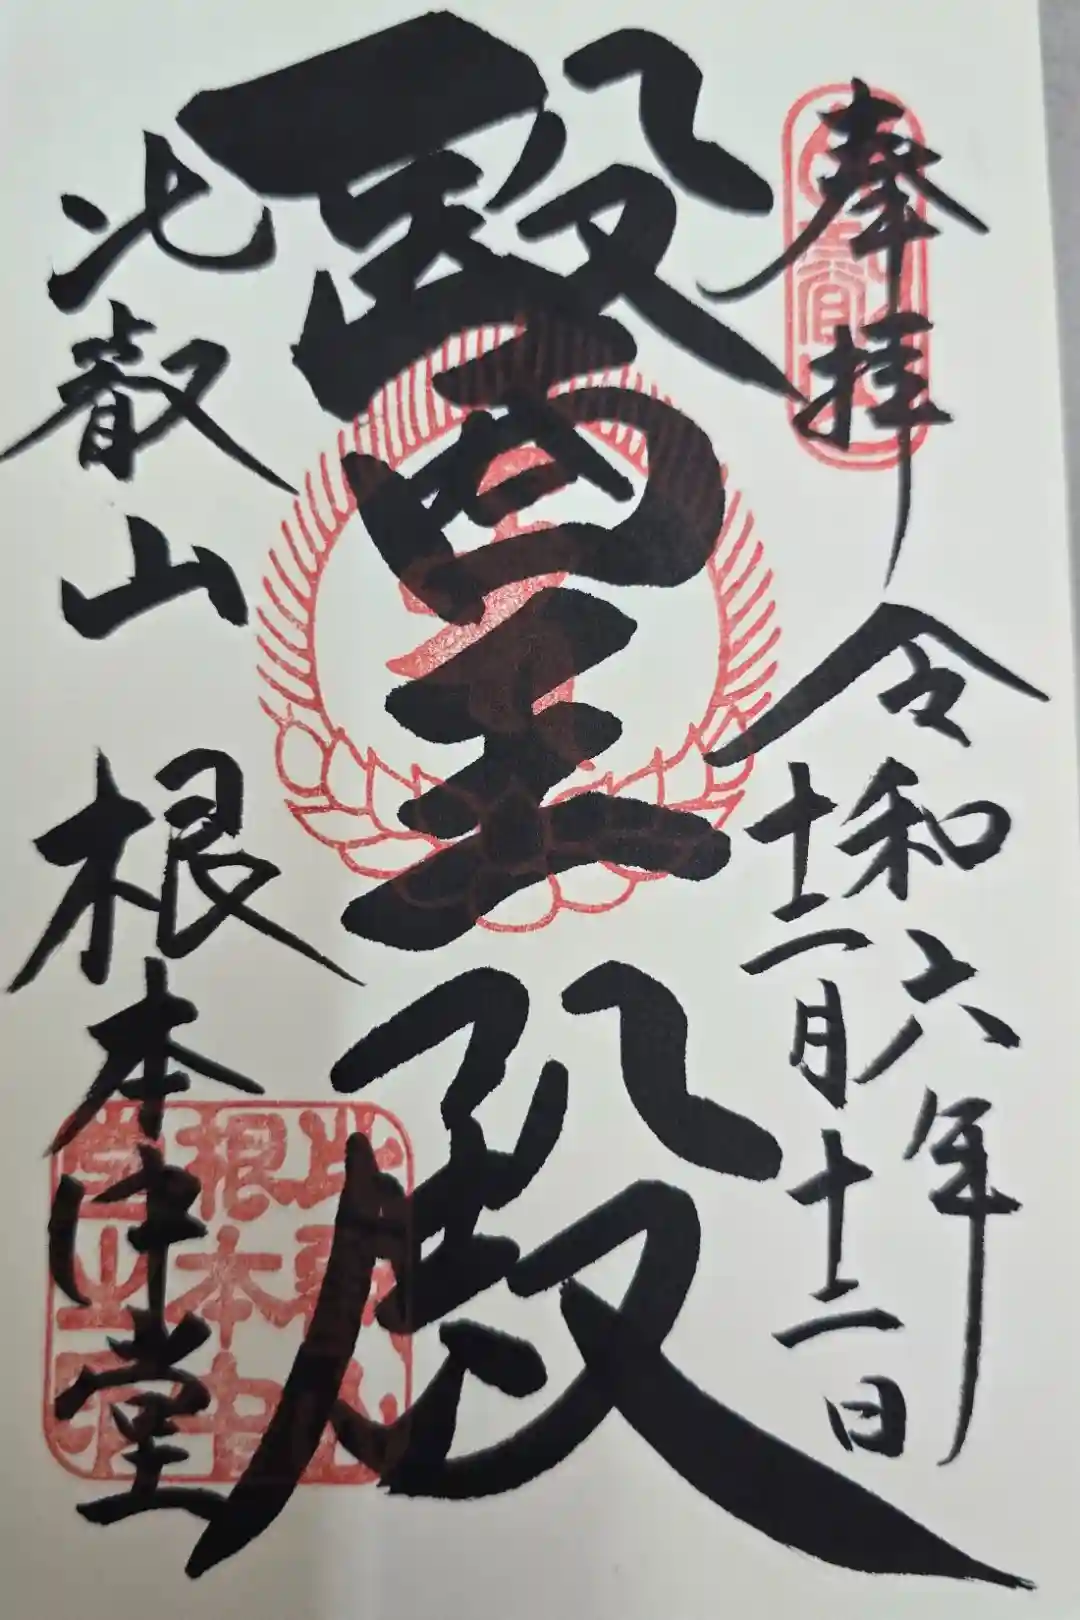 奉拝
令和六年
十二月十二日
醫王殿
比叡山 根本中堂
比叡山
根本中
堂之印